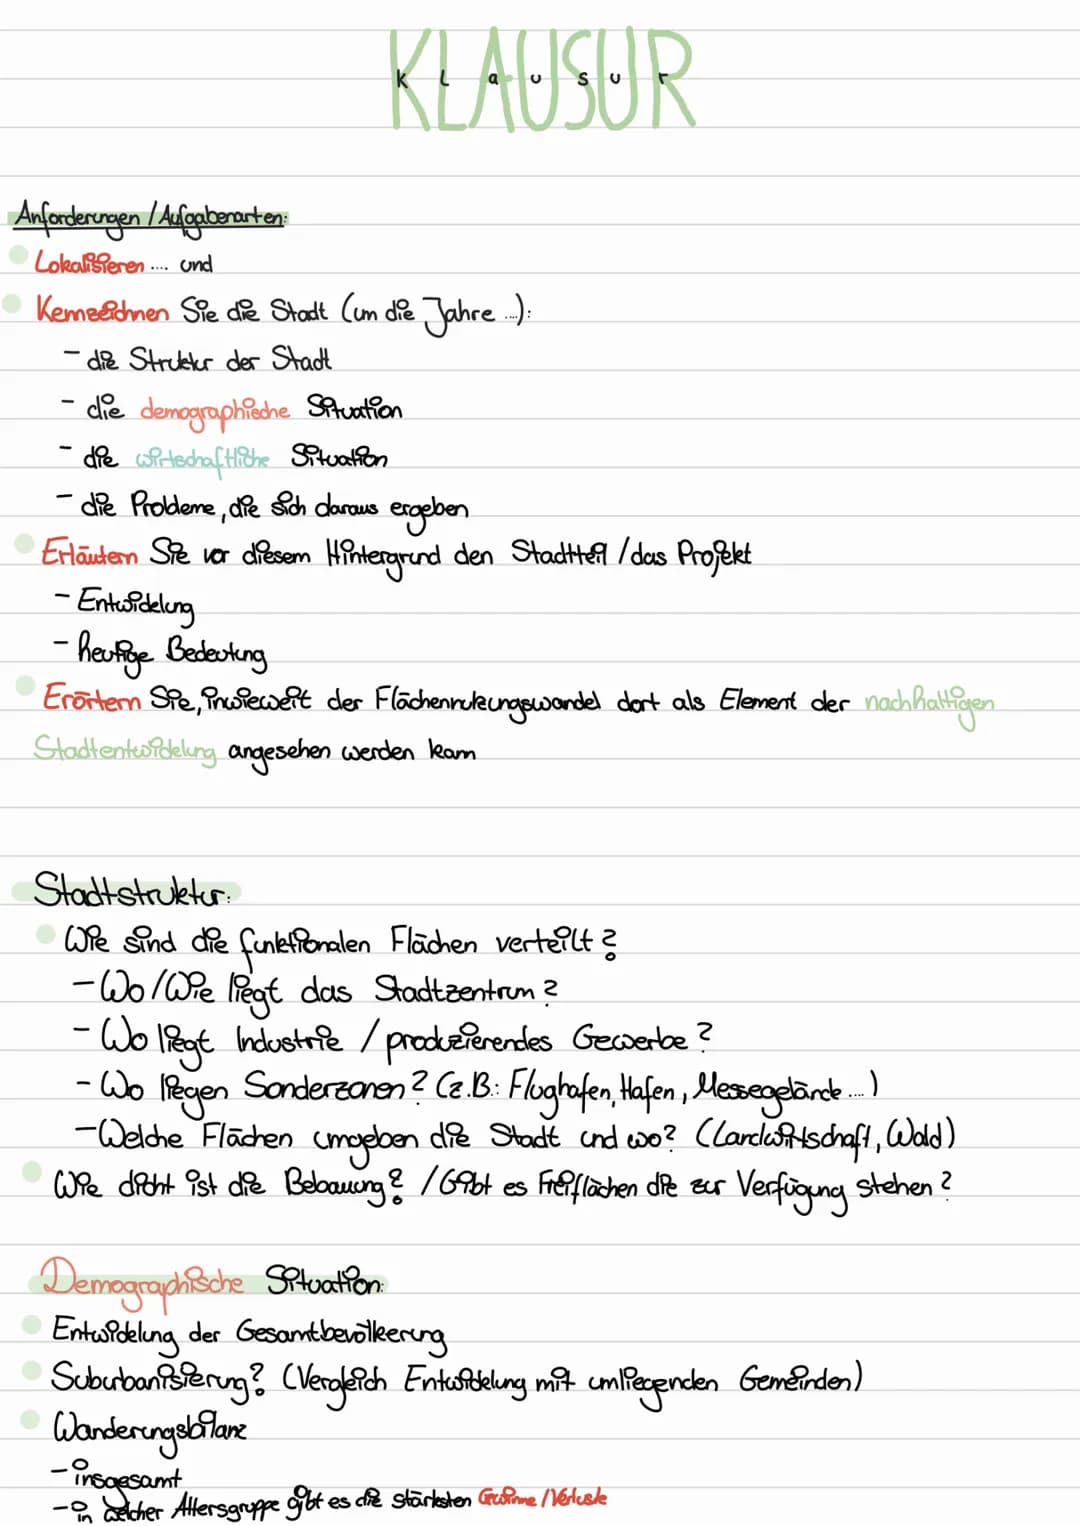 KLAUSUR
Klausur
Anforderungen / Aufgabenarten:
Lokalisieren .... und
Kennzeichnen Sie die Stadt (um die Jahre ...):
- die Struktur der Stadt
- die demographische Situation
- die wirtschaftliche Situation
- die Probleme, die sich daraus ergeben
Erläutern Sie vor diesem Hintergrund den Stadtteil / das Projekt
- Entwicklung
- heutige Bedeutung
Erörtern Sie, inwieweit der Flächennutzungswandel dort als Element der nachhaltigen
Stadtentwicklung angesehen werden kann
Stadtstruktur:
Wie sind die funktionalen Flächen verteilt?
- Wo/Wie liegt das Stadtzentrum?
- Wo liegt Industrie / produzierendes Gewerbe?
- Wo liegen Sonderzonen? (z.B.: Flughafen, Hafen, Messegelände ....)
- Welche Flächen umgeben die Stadt und wo? (Landwirtschaft, Wald)
Wie dicht ist die Bebauung? / Gibt es Freiflächen die zur Verfügung stehen?
Demographische Situation:
Entwicklung der Gesamtbevölkerung
Suburbanisierung? (Vergleich Entwicklung mit umliegenden Gemeinden)
Wanderungsbilanz
- insgesamt
- in welcher Altersgruppe gibt es die stärksten Gewinne / Verluste